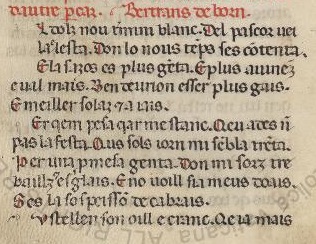 Bertrans de born.
A dolz nou termini blanc. Del pascor uei
la lesta. Don lo nous temps ses contenta.
E la sazos es plus genta. E plus auinenz
e ual mais. Ben deurion esser plus gais.
E meiller solaz 7 a iais.
Er qem pesa qar me stanc. Qeu ades non
pas la festa. Qus sols iorn mi sembla trenta.
Per una promesa genta. Don mi sorz tre
bailz esglais. E no uoill sia meus doais.
Ses la so speisson de cabrais.
son oill e cranc. Qe ia mais